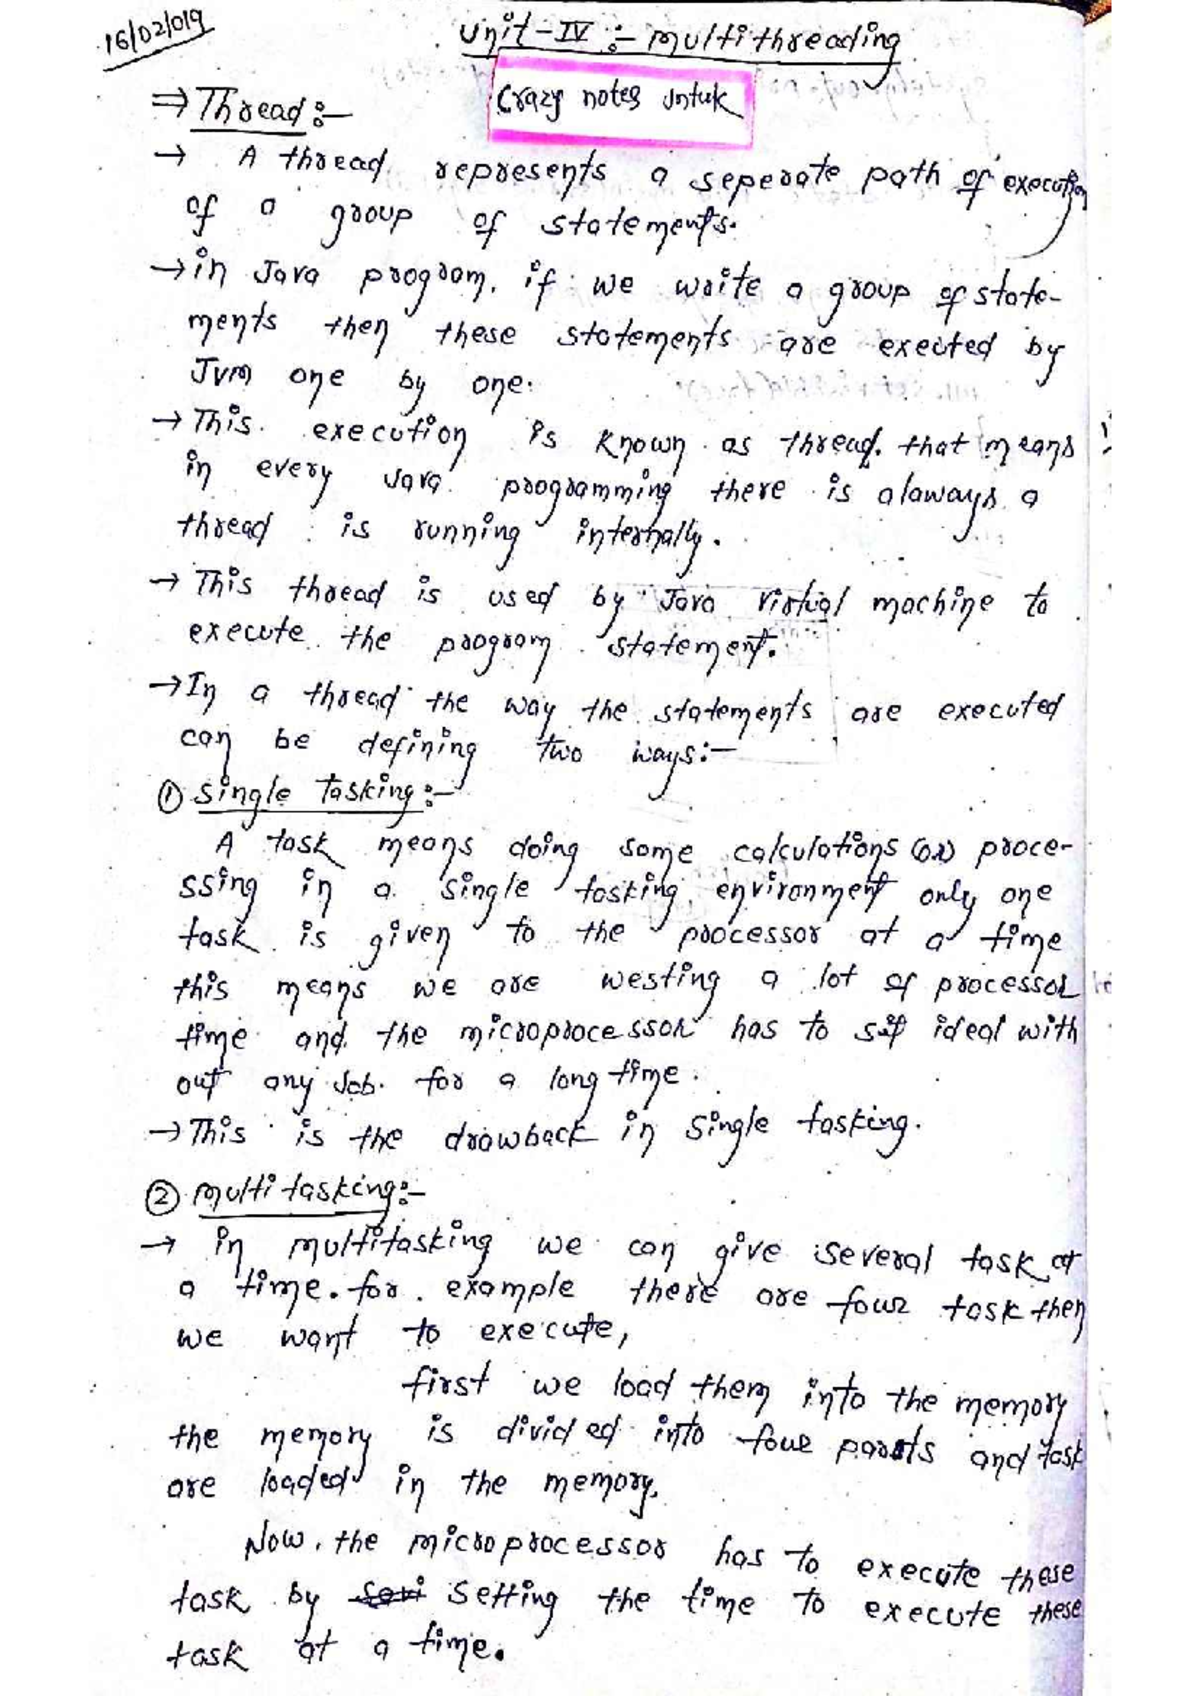 16/02/019
Unit-IV :- Multithreading
Crazy notes Jntuk
⇒ Thread:-
→ A thread represents a seperate path of execution
of a group of statements.
→ in Java program, if we write a group of state-
ments then these statements are exected by
Jvm one by one.
→ This execution is known as thread. that means
in every Java programming there is alaways a
thread is running internally.
→ This thread is used by Java virtual machine to
execute the program statement.
→ In a thread the way the statements are executed
can be defining two ways:-
① Single Tasking:-
A task means doing some calculations (or) proce-
ssing in a single tasking environment only one
task is given to the processor at a time
this means we are westing a lot of processor
time and the microprocessor has to sit ideal with
out any Job for a long time.
→ This is the drawback in single tasking.
② Multi tasking:-
→ in multitasking we can give several task at
a time. for example there are four task then
we want to execute,
first we load them into the memory
the memory is divided into four parts and task
are loaded in the memory.
Now, the microprocessor has to execute these
task by setting the time to execute these
task at a time.